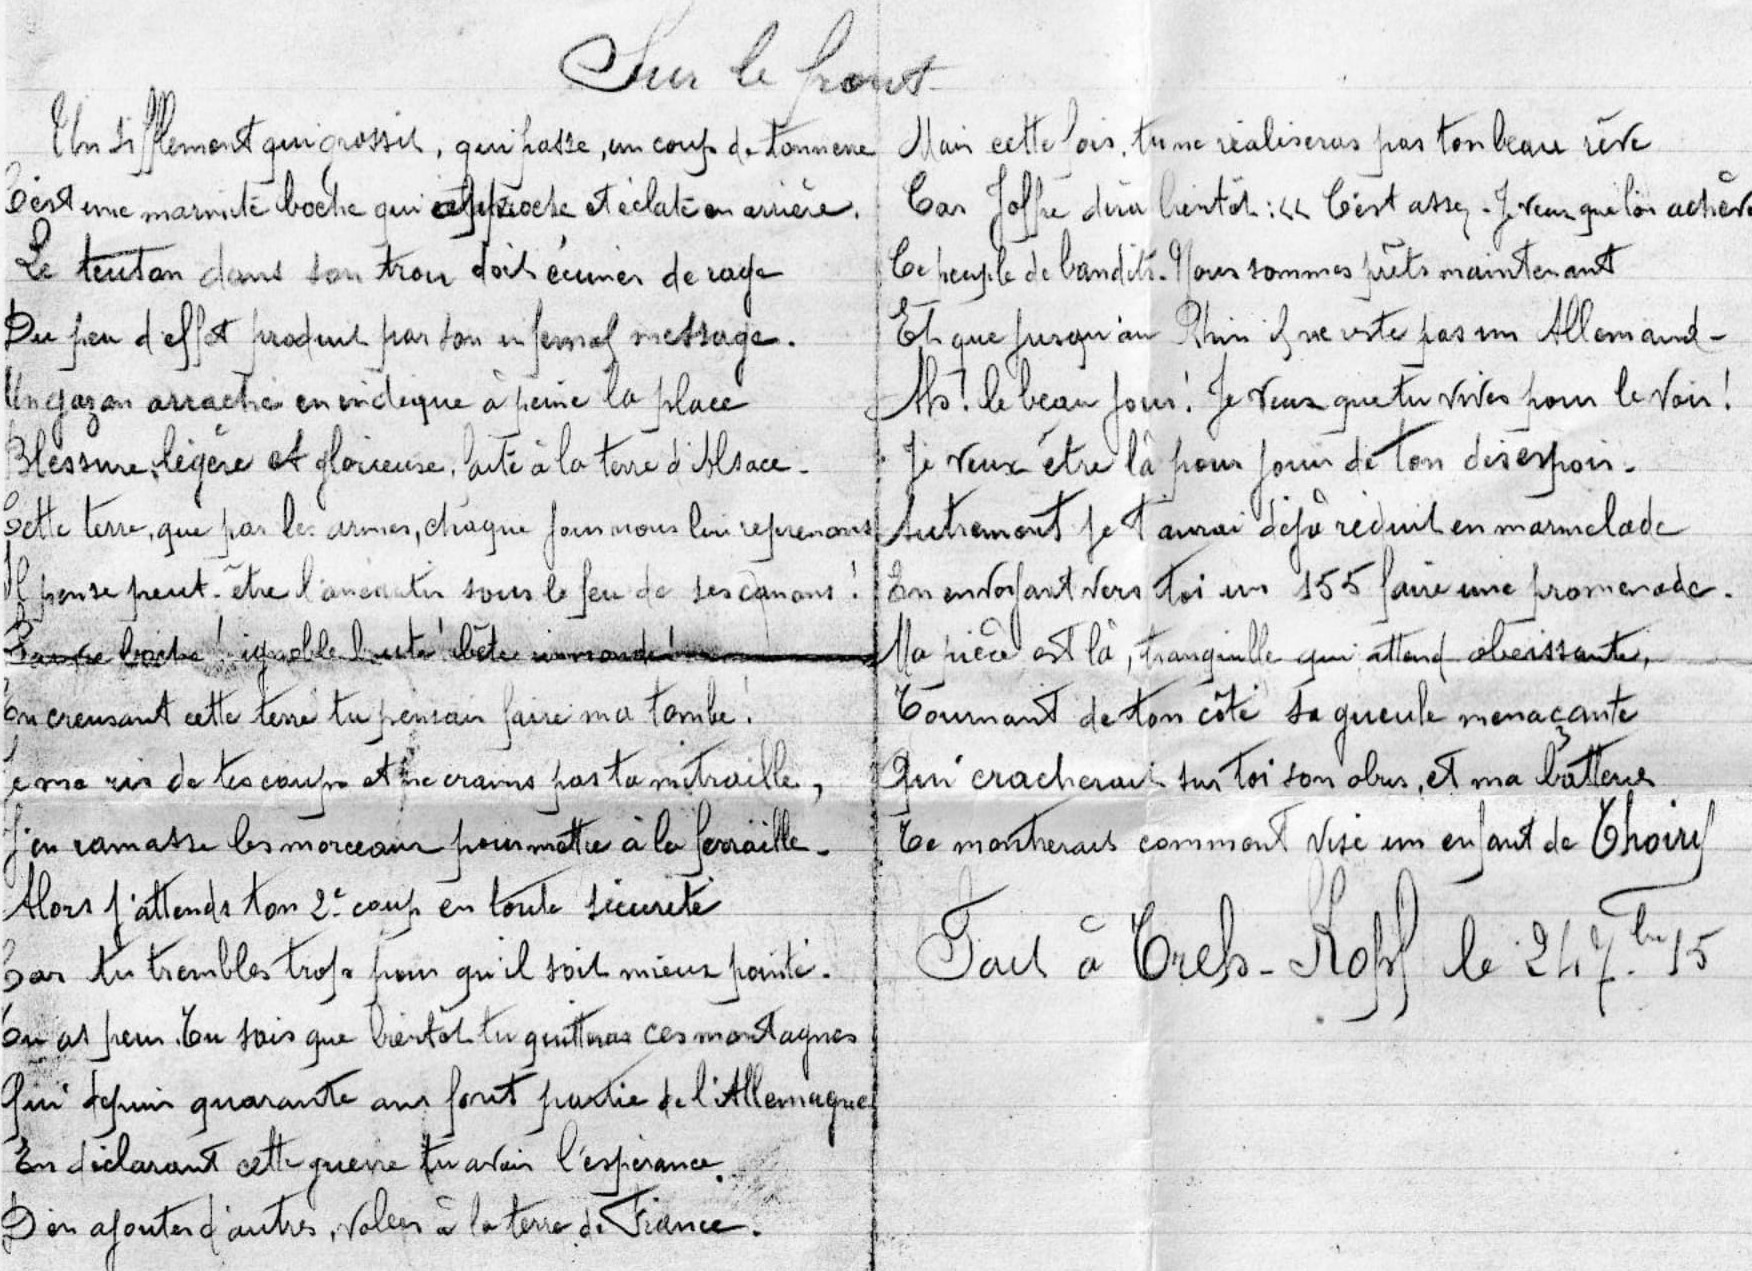 Sur le front
Un sifflement qui grossit, qui passe, un coup de tonnerre
C'est une marmite boche qui approche et éclate en arrière.
Le teuton dans son trou doit écumer de rage
Du peu d'effet produit par son infernal message.
Un gazon arraché en indique à peine la place
Blessure, légère et glorieuse, faite à la terre d'Alsace.
Cette terre, que par les armes, chaque jour nous lui reprenons
Il pense peut-être l'anéantir sous le feu de ses canons !
Pauvre boche ! ignoble brute ! bête immonde !
En creusant cette terre tu pensais faire ma tombe !
Je me ris de tes coups et ne crains pas ta mitraille,
J'en ramasse les morceaux pour mettre à la ferraille.
Alors j'attends ton 2e coup en toute sécurité
Car tu trembles trop pour qu'il soit mieux pointé.
Tu as peur. Tu sais que bientôt tu quitteras ces montagnes
Qui depuis quarante ans font partie de l'Allemagne
En déclarant cette guerre tu avais l'espérance
D'en ajouter d'autres, volées à la terre de France.
Mais cette fois, tu ne réaliseras pas ton beau rêve
Car Joffre dira bientôt : << C'est assez. Je veux que l'on achève
Ce peuple de bandits. Nous sommes prêts maintenant
Et que jusqu'au Rhin il ne reste pas un Allemand -
Ah ! le beau jour ! Je veux que tu vives pour le voir !
Je veux être là pour jouir de ton désespoir.
Autrement je t'aurai déjà réduit en marmelade
En envoyant vers toi un 155 faire une promenade.
Ma pièce est là, tranquille qui attend obeissante,
Tournant de ton côté sa gueule menaçante
Qui cracherait sur toi son obus, et ma batterie
Te montrerais comment vise un enfant de Thoiry
Fait à Treh-Kopf le 24 7bre 15